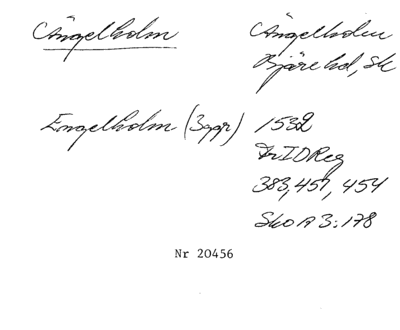 Ängelholm
Ängelholm
Bjäre hd, Sk
Engelholm (3 ggr)
1532
Fr I DReg
383, 457, 454
Sko A 3: 178
Nr 20456